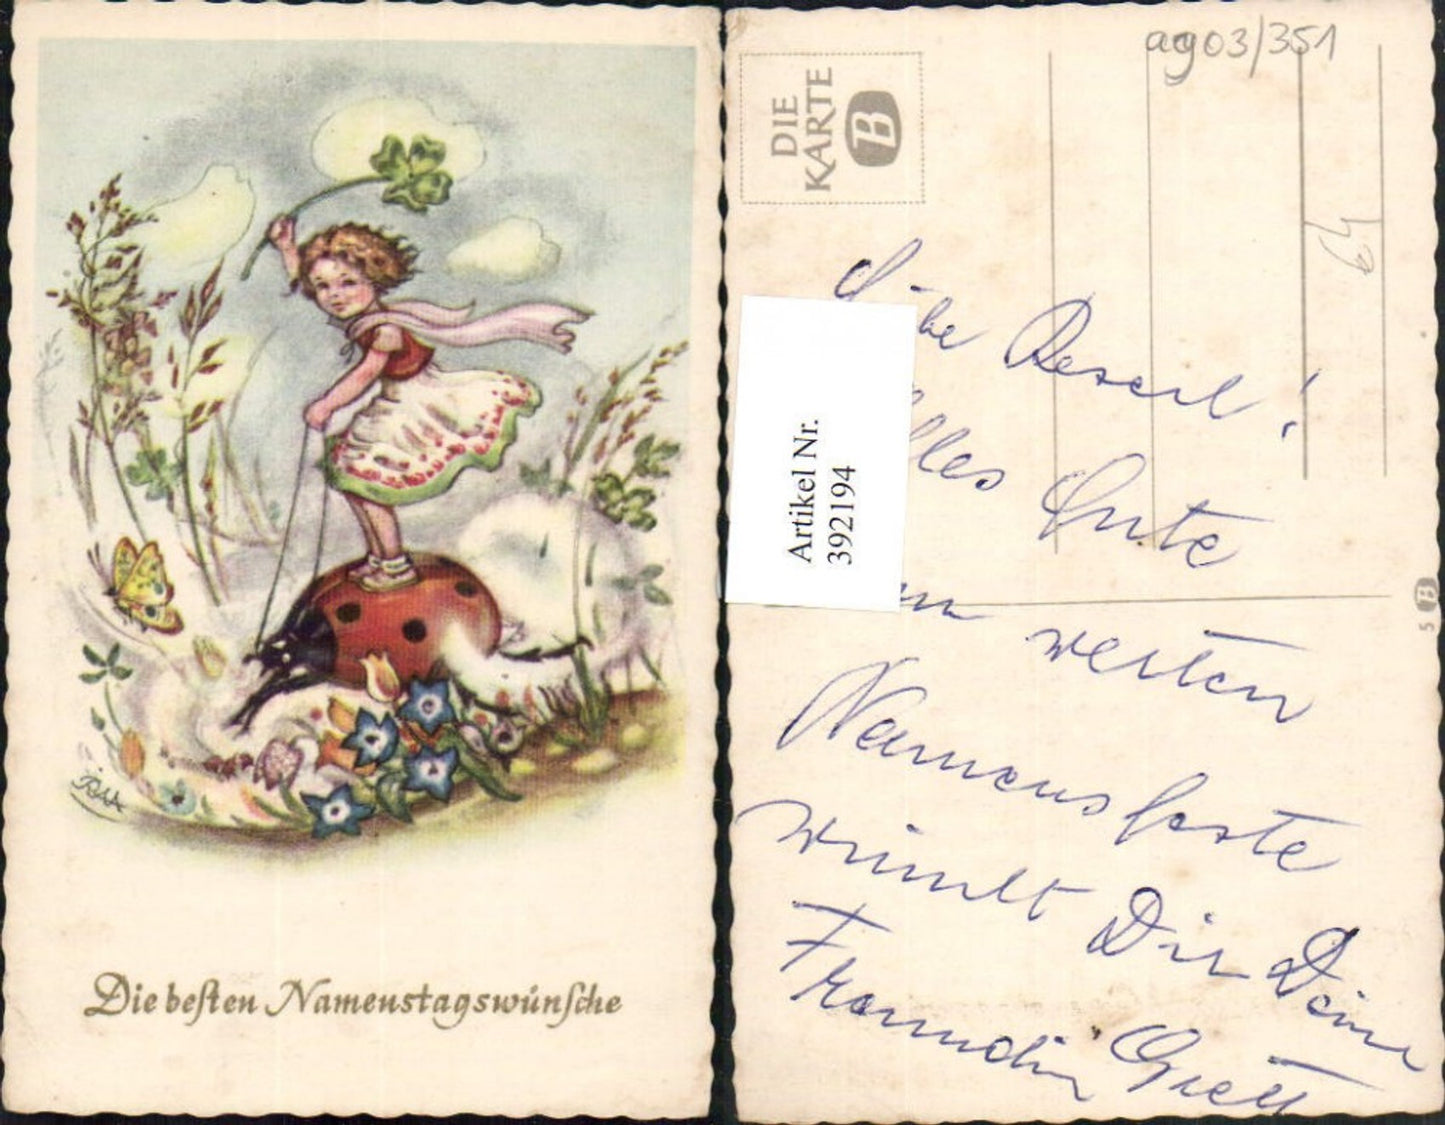 Die besten Namenstagswünsche
ag03/351
DIE
KARTE
B
Artikel Nr.
392194
64
5 B
Liebe Reserl!
Alles Gute
zum werten
Namensfeste
wünscht Dir Deine
Freundin Gretl